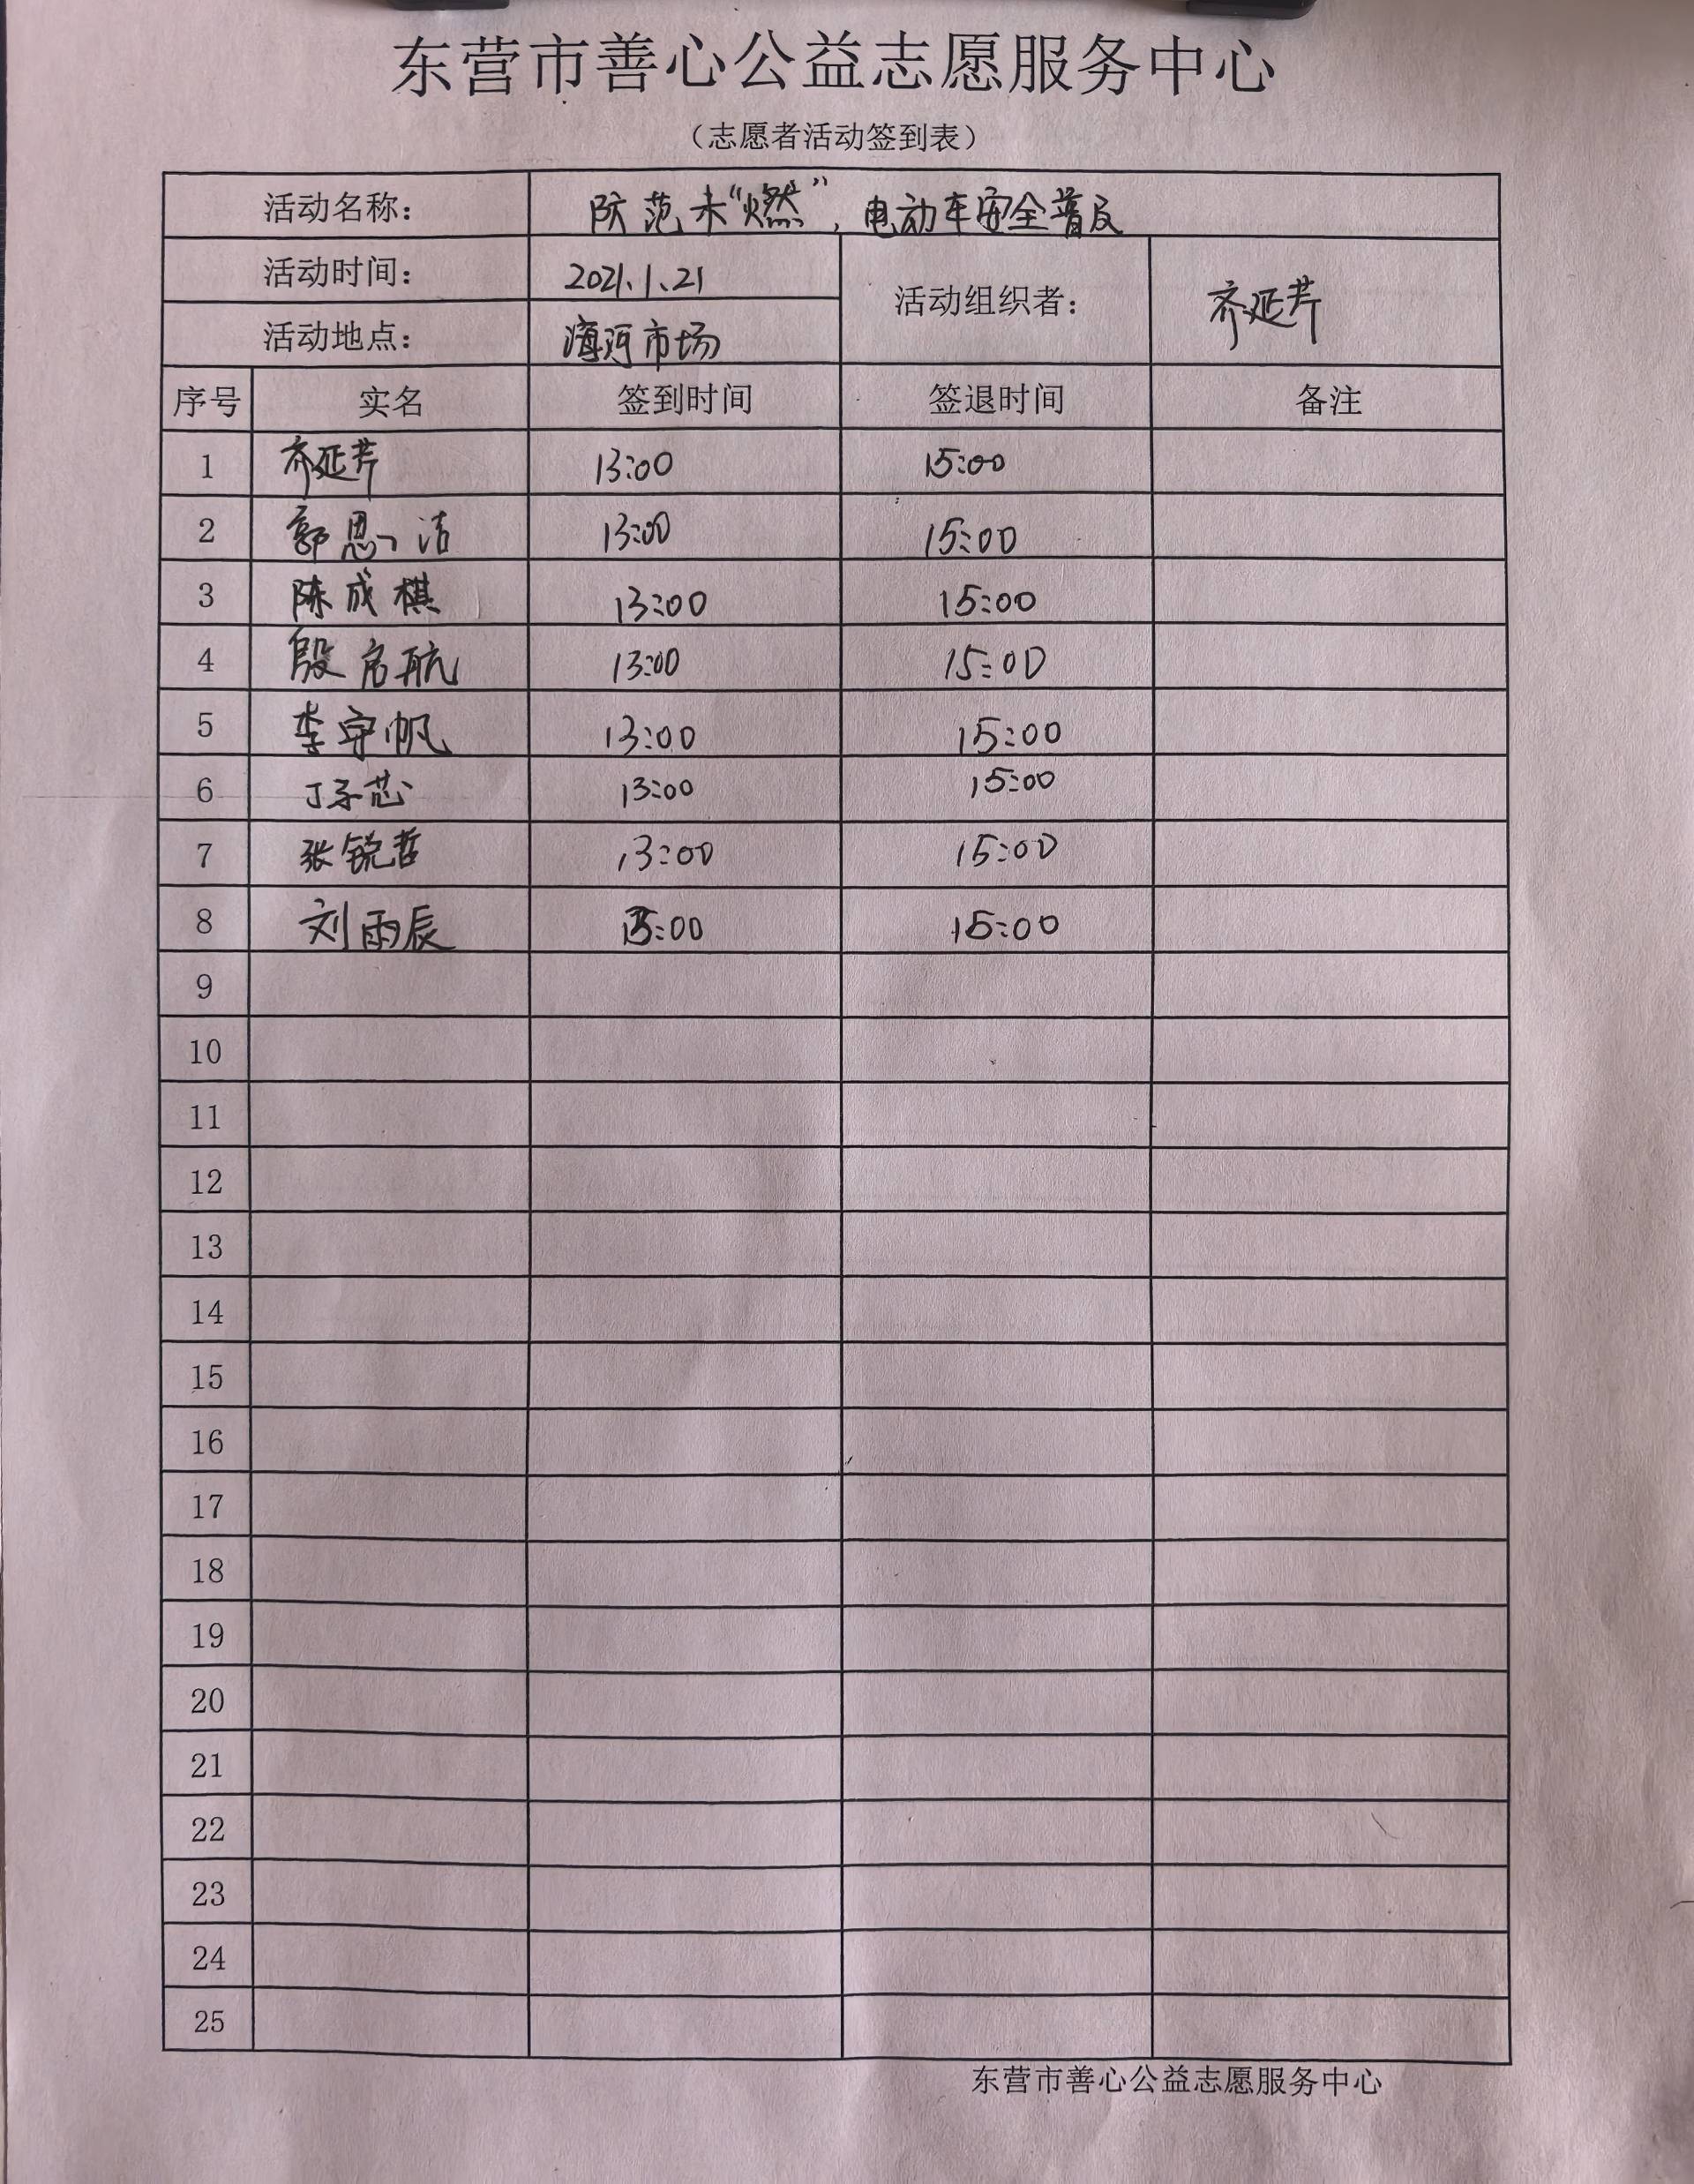 东营市善心公益志愿服务中心
（志愿者活动签到表）
活动名称： 防范未“燃”，电动车安全普及
活动时间： 2021.1.21 活动组织者： 齐延芹
活动地点： 市场
序号 实名 签到时间 签退时间 备注
1 齐延芹 13:00 15:00
2 郭思洁 13:00 15:00
3 陈成棋 13:00 15:00
4 殷启航 13:00 15:00
5 李宇帆 13:00 15:00
6 丁子芯 13:00 15:00
7 张锐哲 13:00 15:00
8 刘雨辰 13:00 15:00
9
10
11
12
13
14
15
16
17
18
19
20
21
22
23
24
25
东营市善心公益志愿服务中心